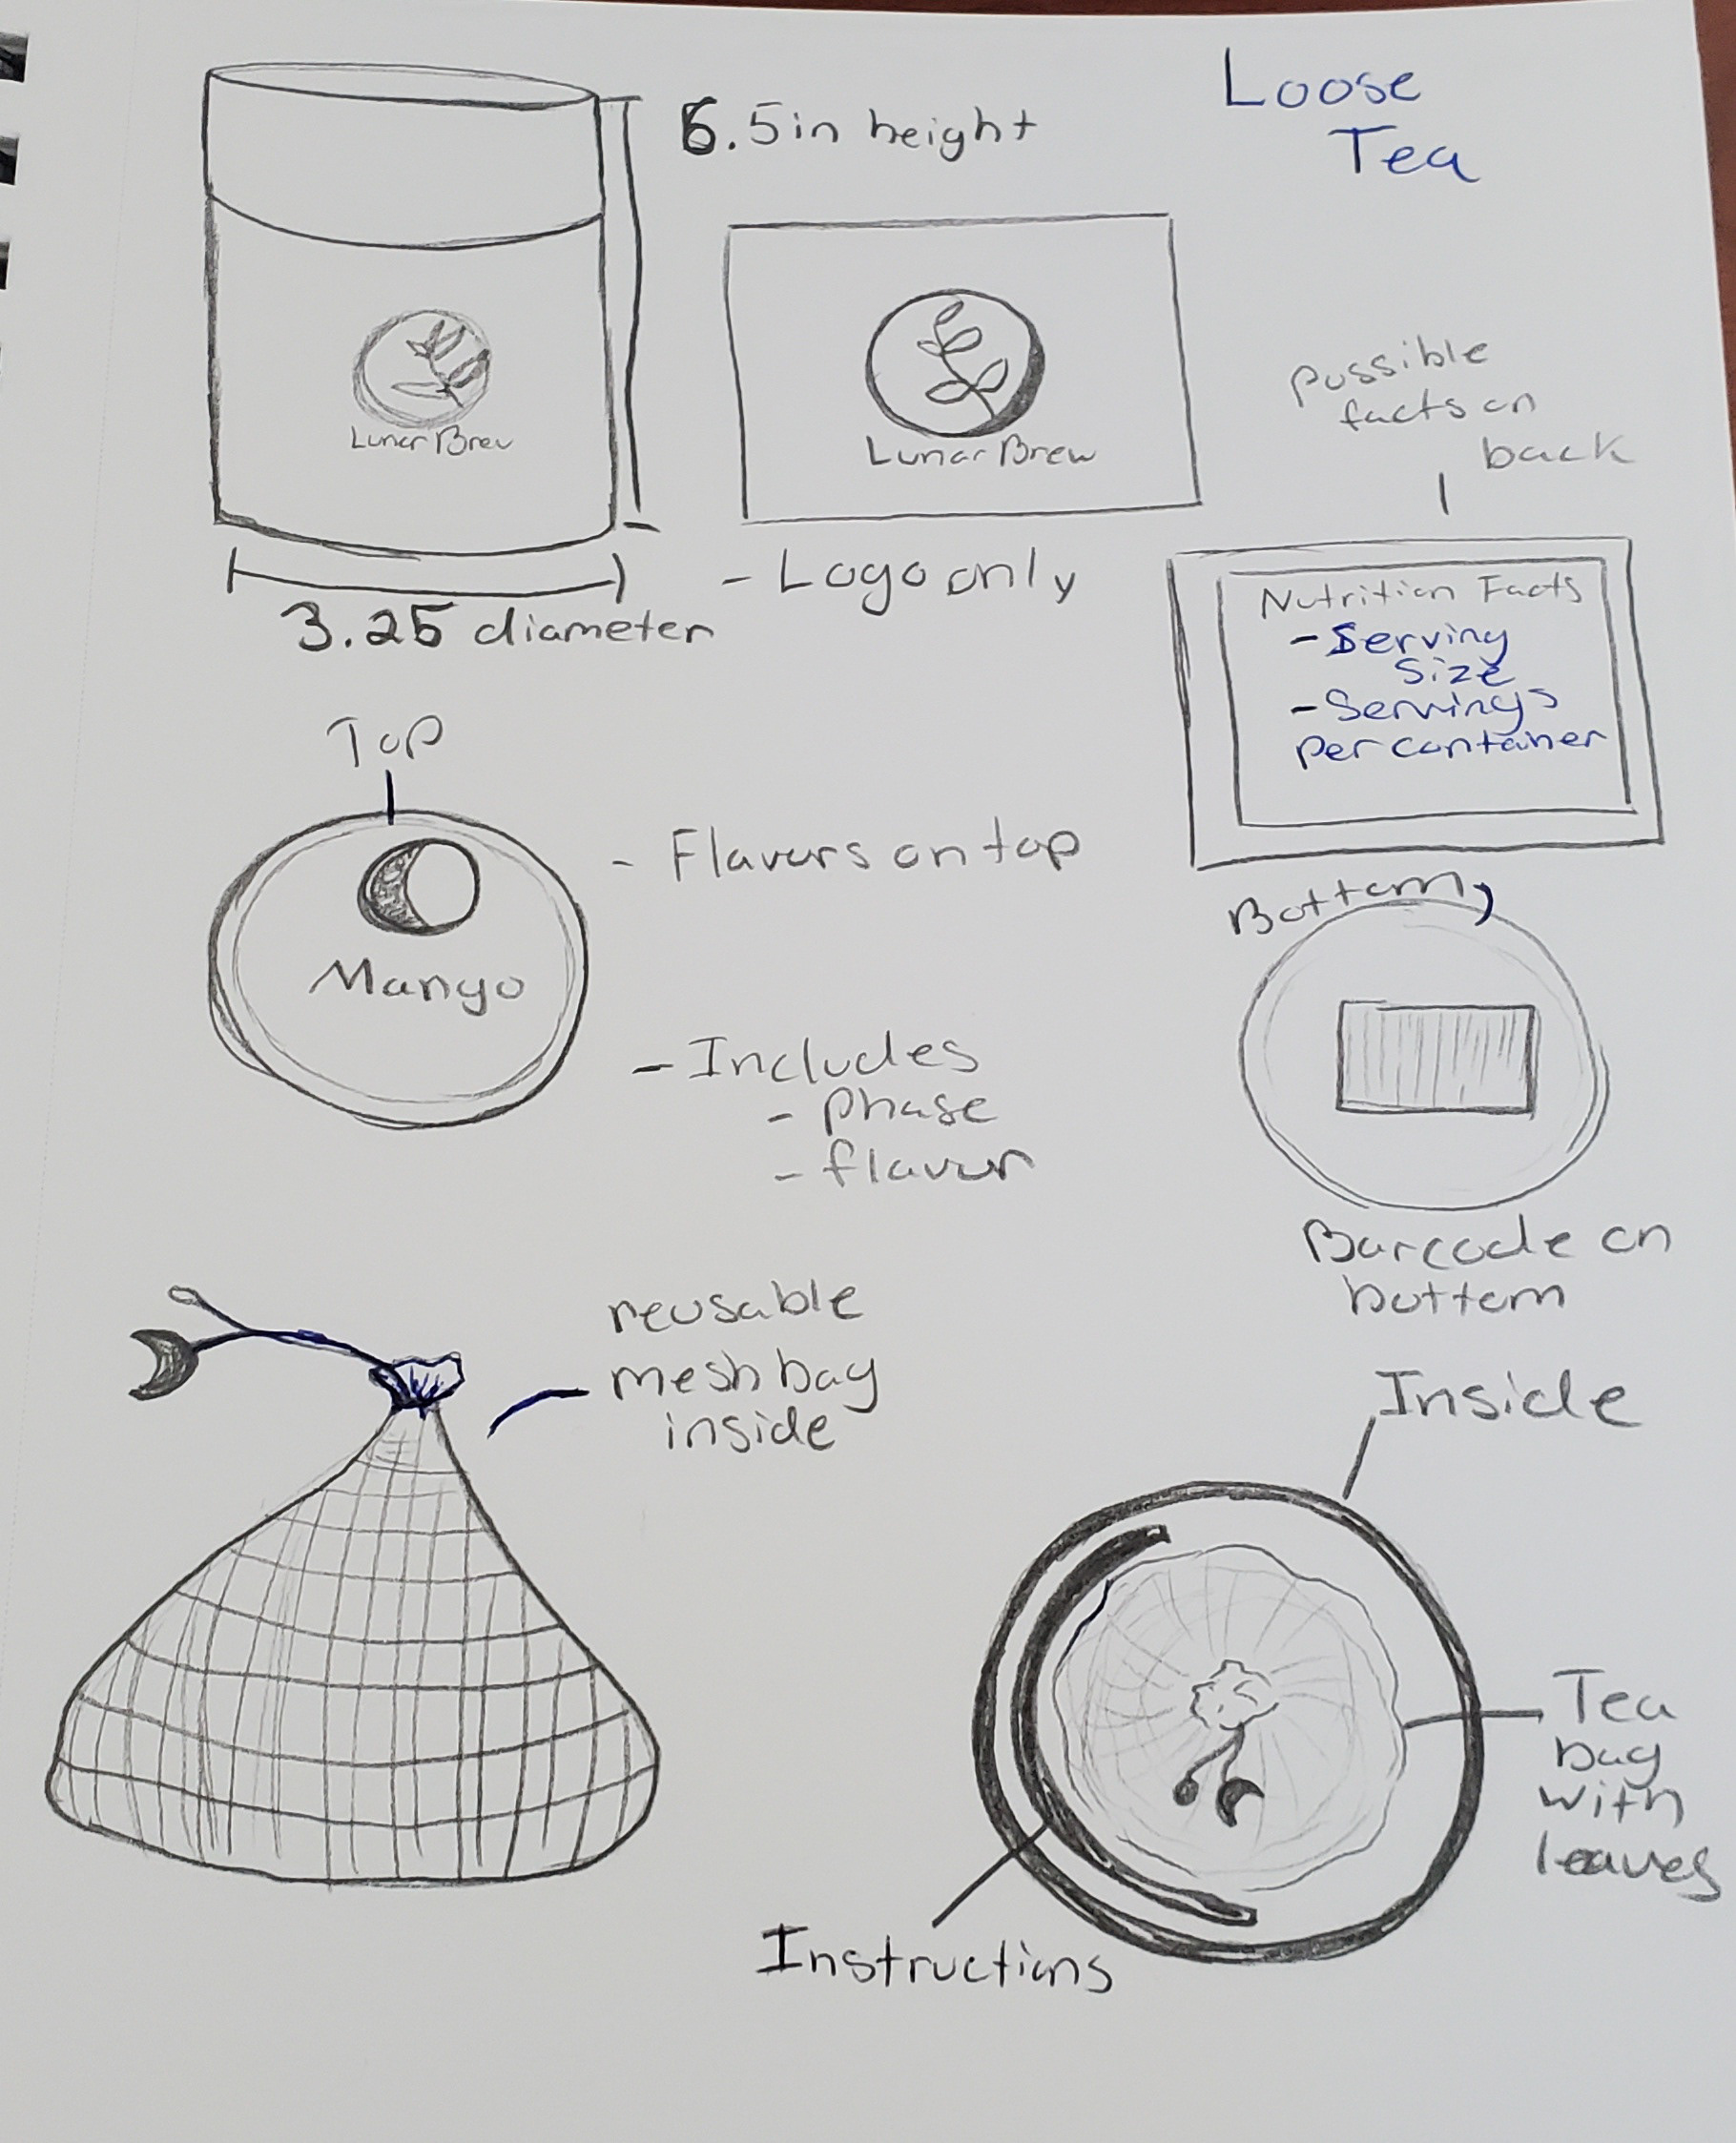 Loose
Tea
6.5in height
Lunar Brew
Lunar Brew
3.25 diameter
- Logo only
possible
facts on
back
Nutrition Facts
- Serving
Size
- Servings
per container
Top
Mango
- Flavors on top
- Includes
- phase
- flavor
Bottom
Barcode on
bottom
reusable
mesh bag
inside
Inside
Tea
bag
with
leaves
Instructions